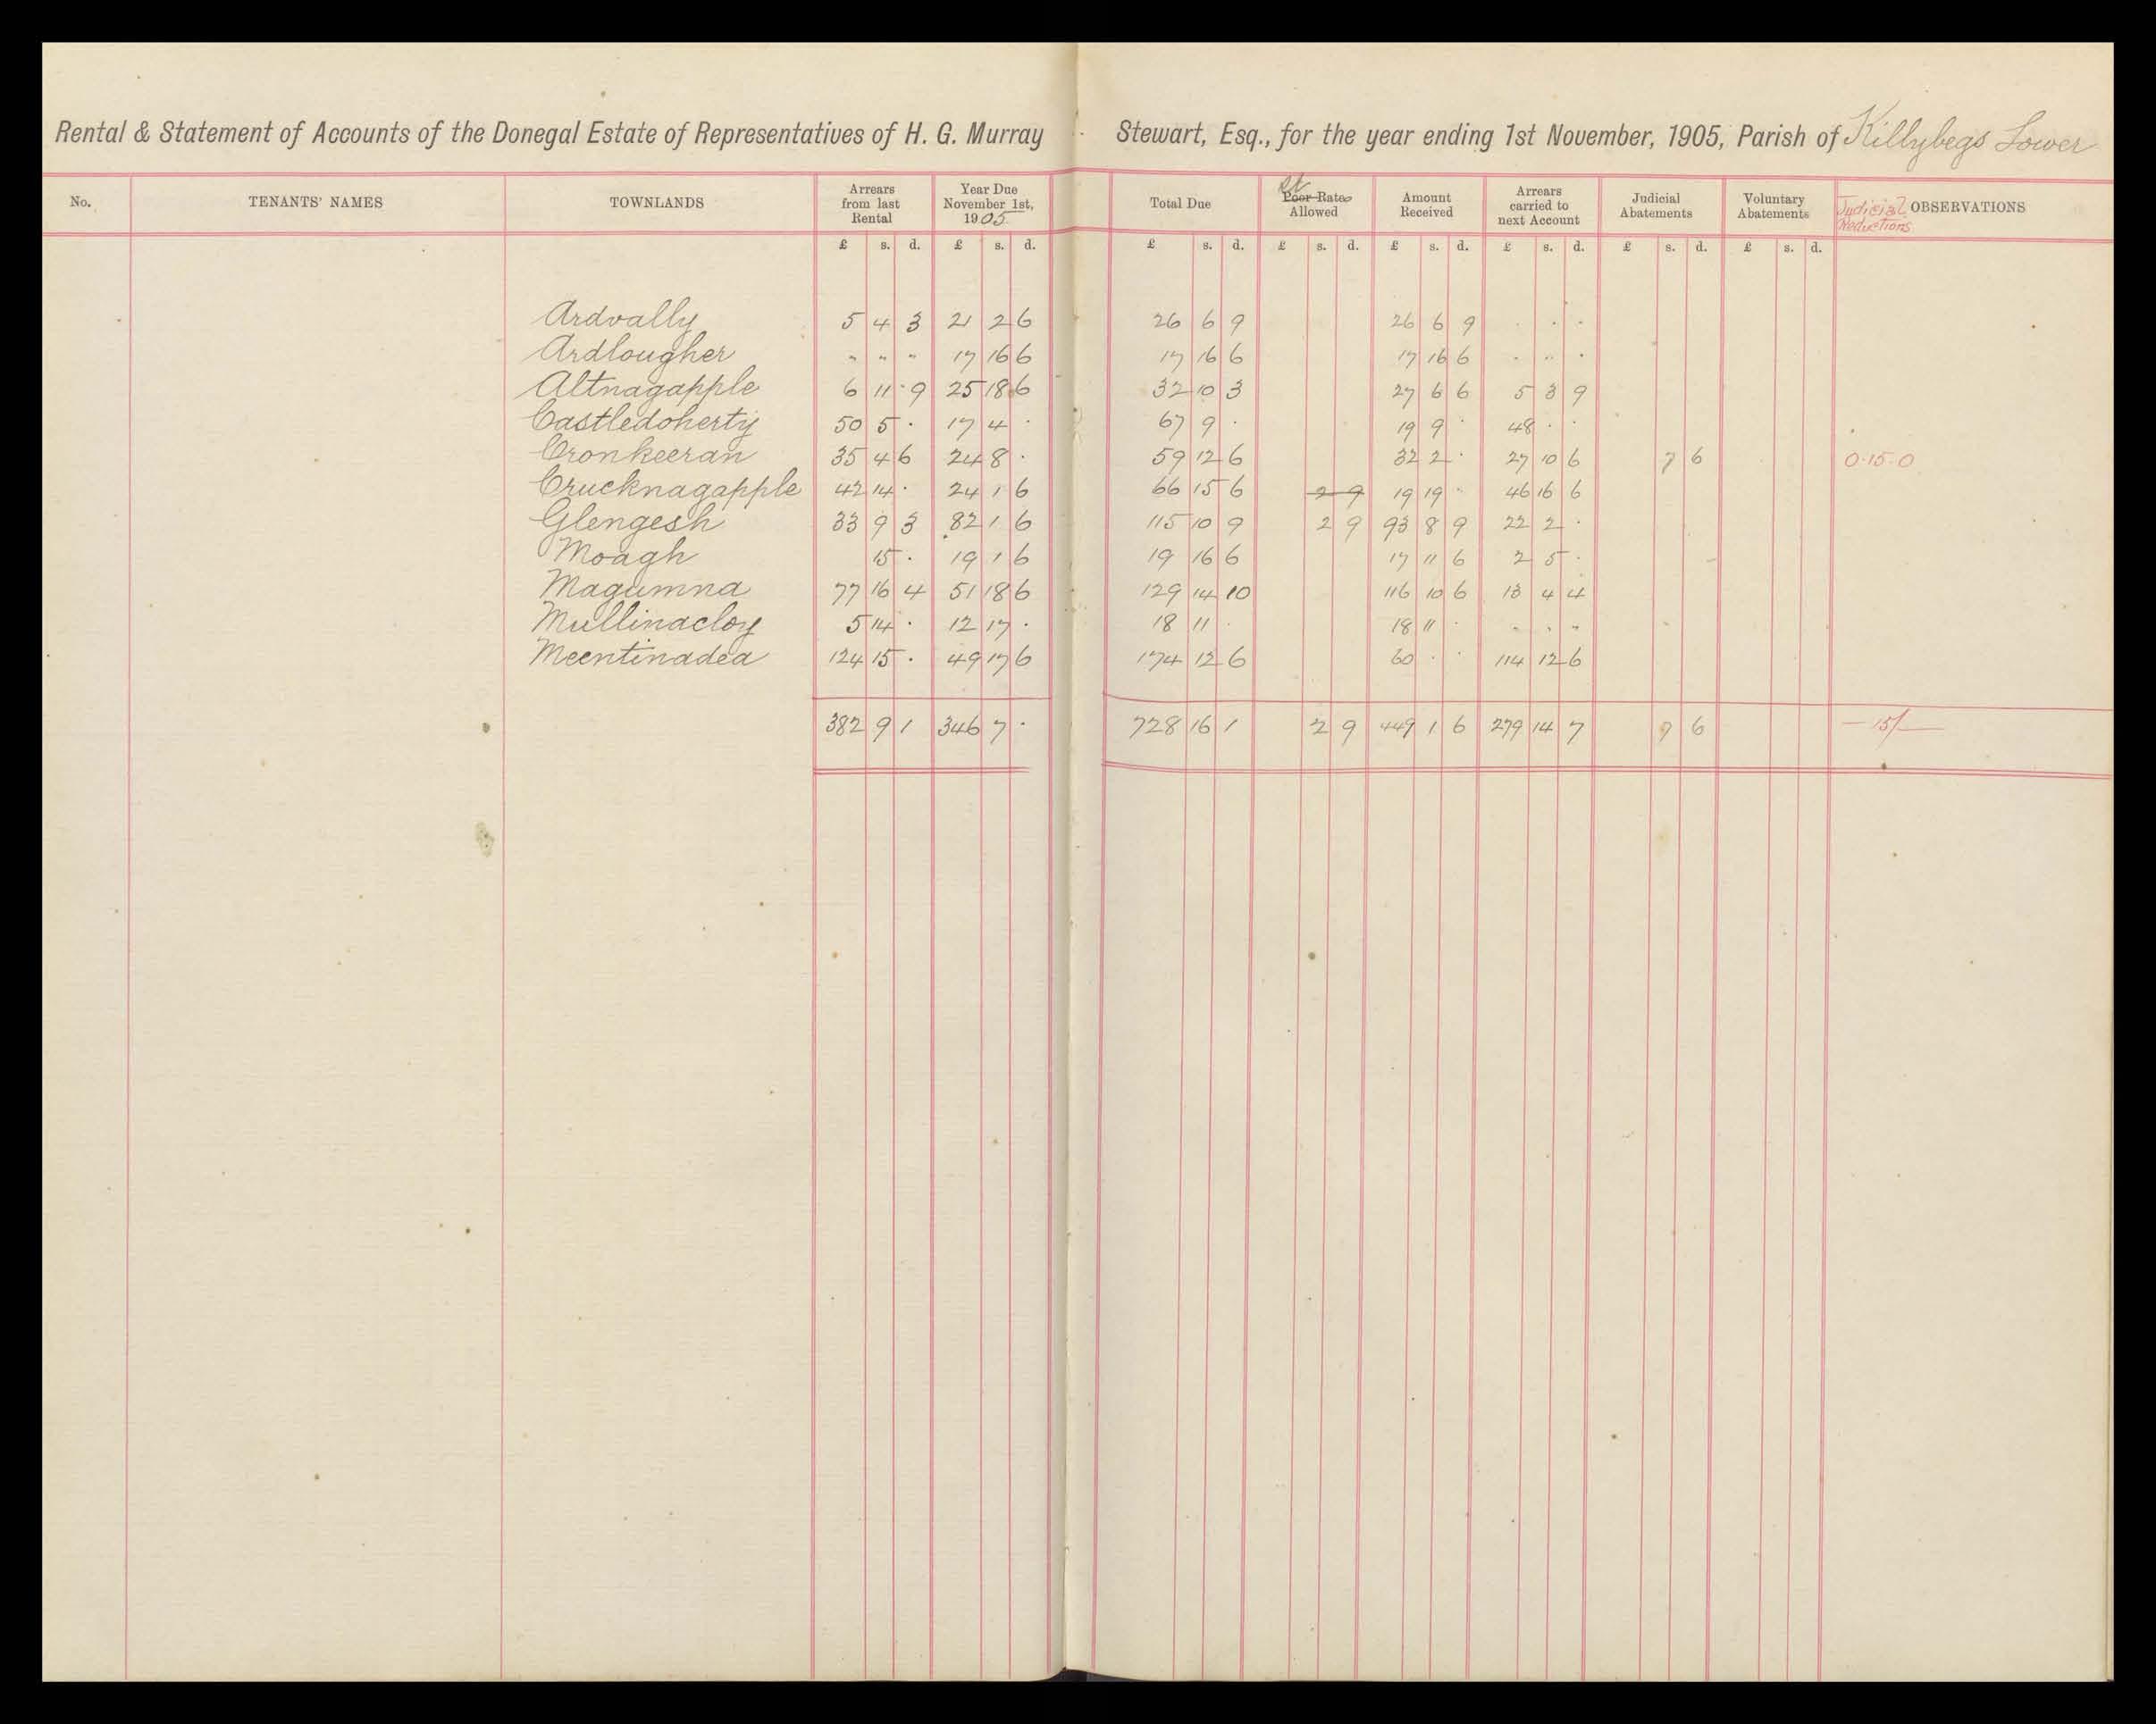 Rental & Statement of Accounts of the Donegal Estate of Representatives of H. G. Murray Stewart, Esq., for the year ending 1st November, 1905, Parish of Killybegs Lower
No. TENANTS' NAMES TOWNLANDS Arrears from last Rental Year Due November 1st, 1905 Total Due Poor Rates Allowed Amount Received Arrears carried to next Account Judicial Abatements Voluntary Abatements Judicial Reductions OBSERVATIONS
£ s. d. £ s. d. £ s. d. £ s. d. £ s. d. £ s. d. £ s. d. £ s. d.
Ardvally 5 4 3 21 2 6 26 6 9 26 6 9 . . .
Ardlougher " " " 17 16 6 17 16 6 17 16 6 . . .
Altnagapple 6 11 9 25 18 6 32 10 3 27 6 6 5 3 9
Castledoherty 50 5 . 17 4 . 67 9 . 19 9 . 48 . .
Cronkeeran 35 4 6 24 8 . 59 12 6 32 2 . 27 10 6 7 6 0.15.0
Crucknagapple 42 14 . 24 1 6 66 15 6 2 9 19 19 . 46 16 6
Glengesh 33 9 3 82 1 6 115 10 9 2 9 93 8 9 22 2 .
Moagh 15 . 19 1 6 19 16 6 17 11 6 2 5 .
Magumna 77 16 4 51 18 6 129 14 10 116 10 6 13 4 4
Mullinacloy 5 14 . 12 17 . 18 11 . 18 11 . . . .
Meentinadea 124 15 . 49 17 6 174 12 6 60 . . 114 12 6
382 9 1 346 7 . 728 16 1 2 9 449 1 6 279 14 7 7 6 — 15/—